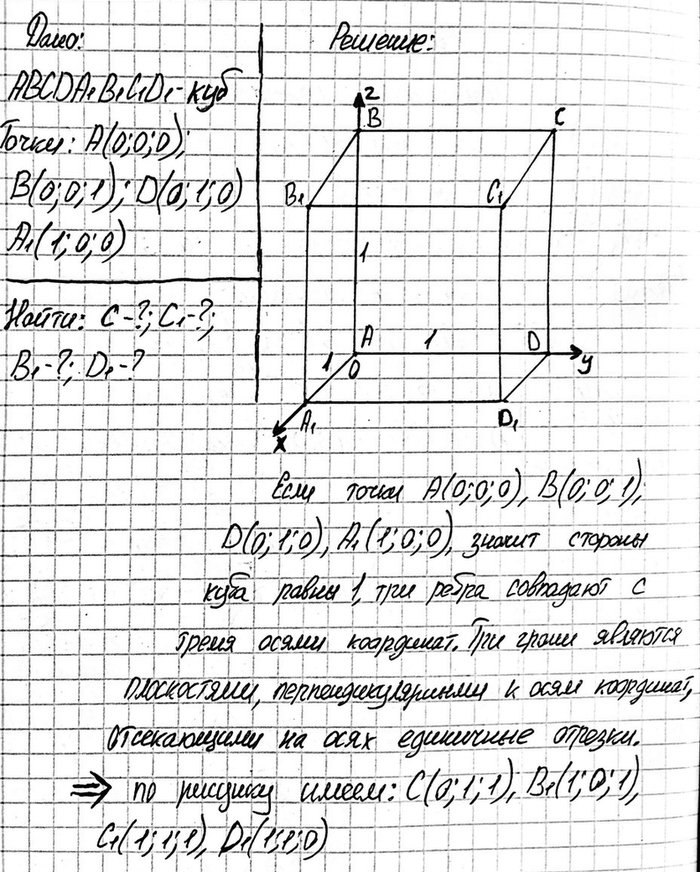 Дано:
ABCDA₁B₁C₁D₁ - куб
Точки: A(0;0;0);
B(0;0;1); D(0;1;0)
A₁(1;0;0)
Найти: C-?; C₁-?;
B₁-?; D₁-?
Решение:
z
B
C
B₁
C₁
1
A
1
D
1
0
y
A₁
D₁
x
Если точки A(0;0;0), B(0;0;1),
D(0;1;0), A₁(1;0;0), значит стороны
куба равны 1, три ребра совпадают с
тремя осями координат. Три грани являются
плоскостями, перпендикулярными к осям координат,
отсекающими на осях единичные отрезки.
⇒ по рисунку имеем: C(0;1;1), B₁(1;0;1),
C₁(1;1;1), D₁(1;1;0)